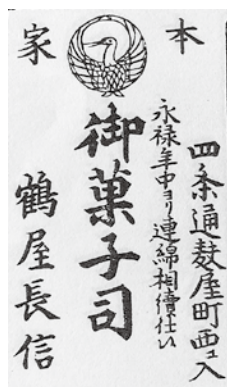 本家
四条通麩屋町西ヱ入
永禄年中ヨリ連綿相續仕候
御菓子司
鶴屋長信